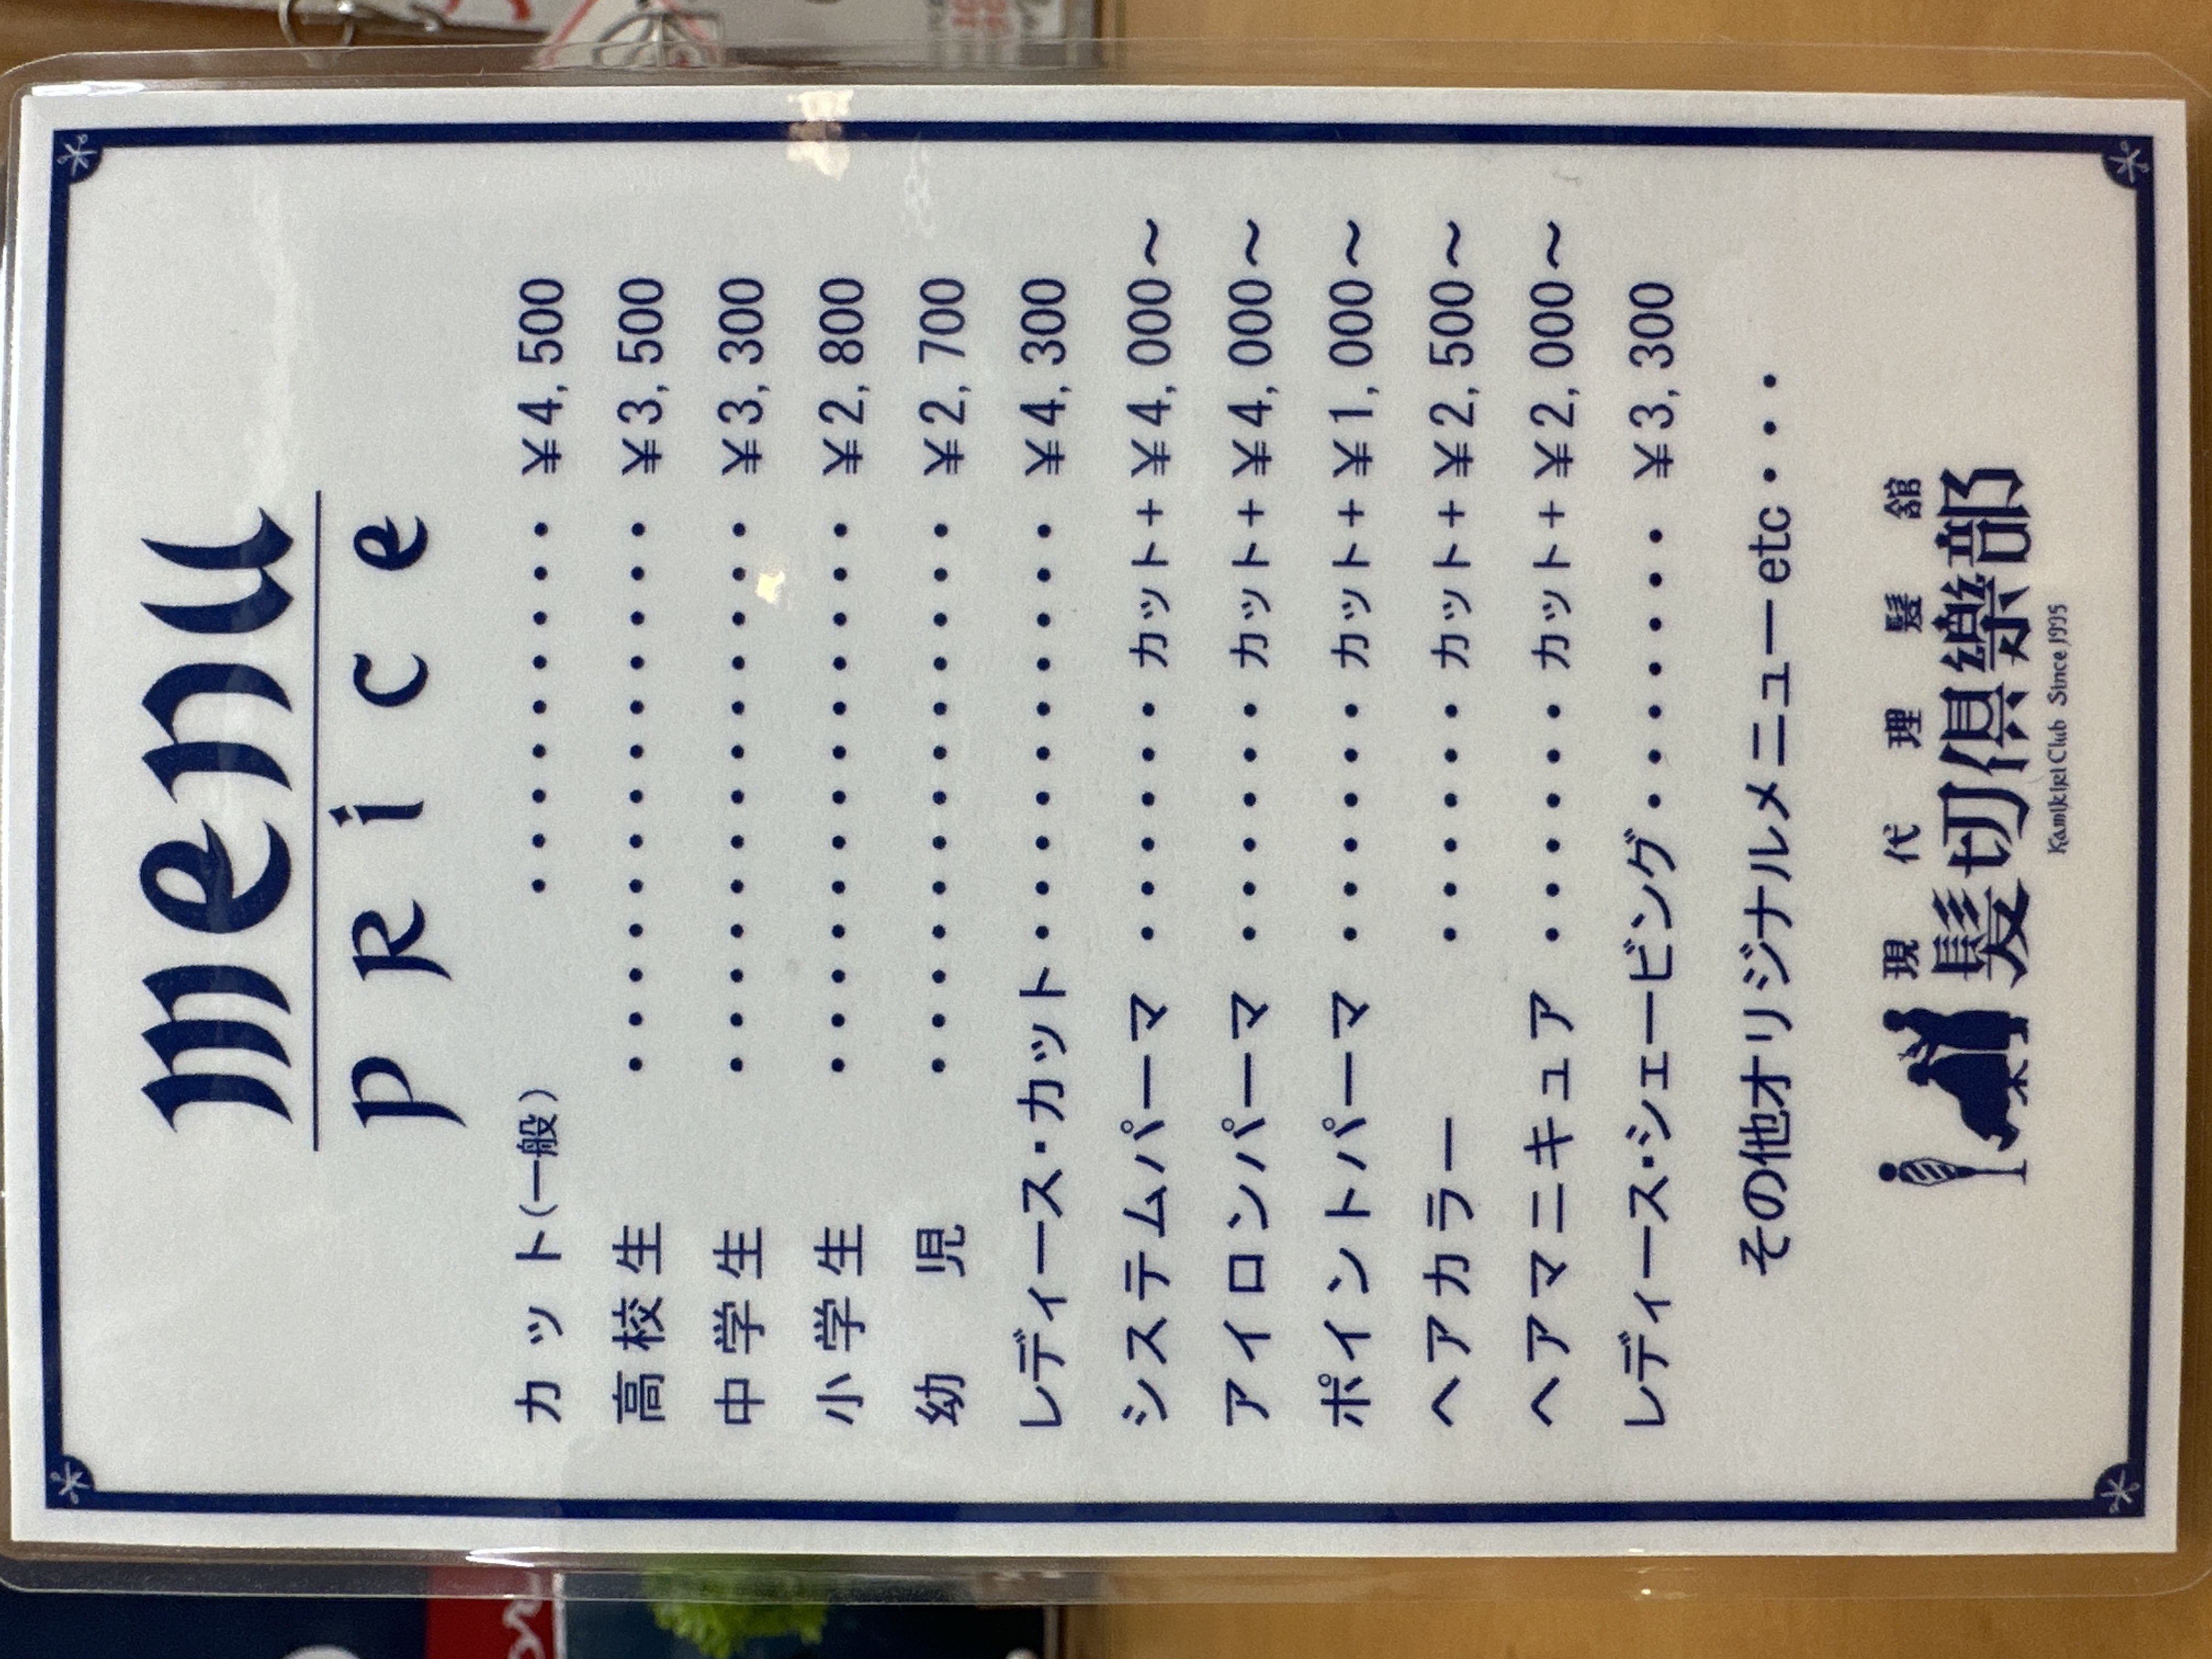 menu
pRice
カット(一般) ・・・・・・・・・ ¥4,500
高校生 ・・・・・・・・・・・・・ ¥3,500
中学生 ・・・・・・・・・・・・・ ¥3,300
小学生 ・・・・・・・・・・・・・ ¥2,800
幼児 ・・・・・・・・・・・・・ ¥2,700
レディース・カット・・・・・・・・・・ ¥4,300
システムパーマ ・・・・・・ カット+¥4,000~
アイロンパーマ ・・・・・・ カット+¥4,000~
ポイントパーマ ・・・・・・ カット+¥1,000~
ヘアカラー ・・・・・・ カット+¥2,500~
ヘアマニキュア ・・・・・・ カット+¥2,000~
レディース・シェービング・・・・・・・ ¥3,300
その他オリジナルメニューetc・・・
現代理髪館
髪切倶樂部
Kamikiri Club Since 1995